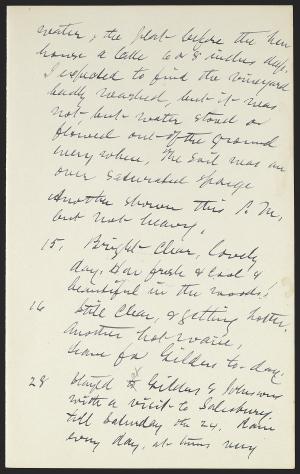 water, the flat before the hen
house a lake 6 or 8 inches deep.
I expected to find the vineyard
badly washed, but it was
not but water stood or
flowed out of the ground
every where, the soil was an
over saturated sponge
Another shower this P.M.
but not heavy.
15, Bright Clear, lovely
day. Air fresh & cool &
beautiful in the woods!
16 Still Clear, & getting hotter.
Another hot wave,
leave for Gilders to-day.
28 Stay'd at Gilders & Johnsons
with a visit to Salisbury.
till Saturday the 24. Rain
every day, at times very